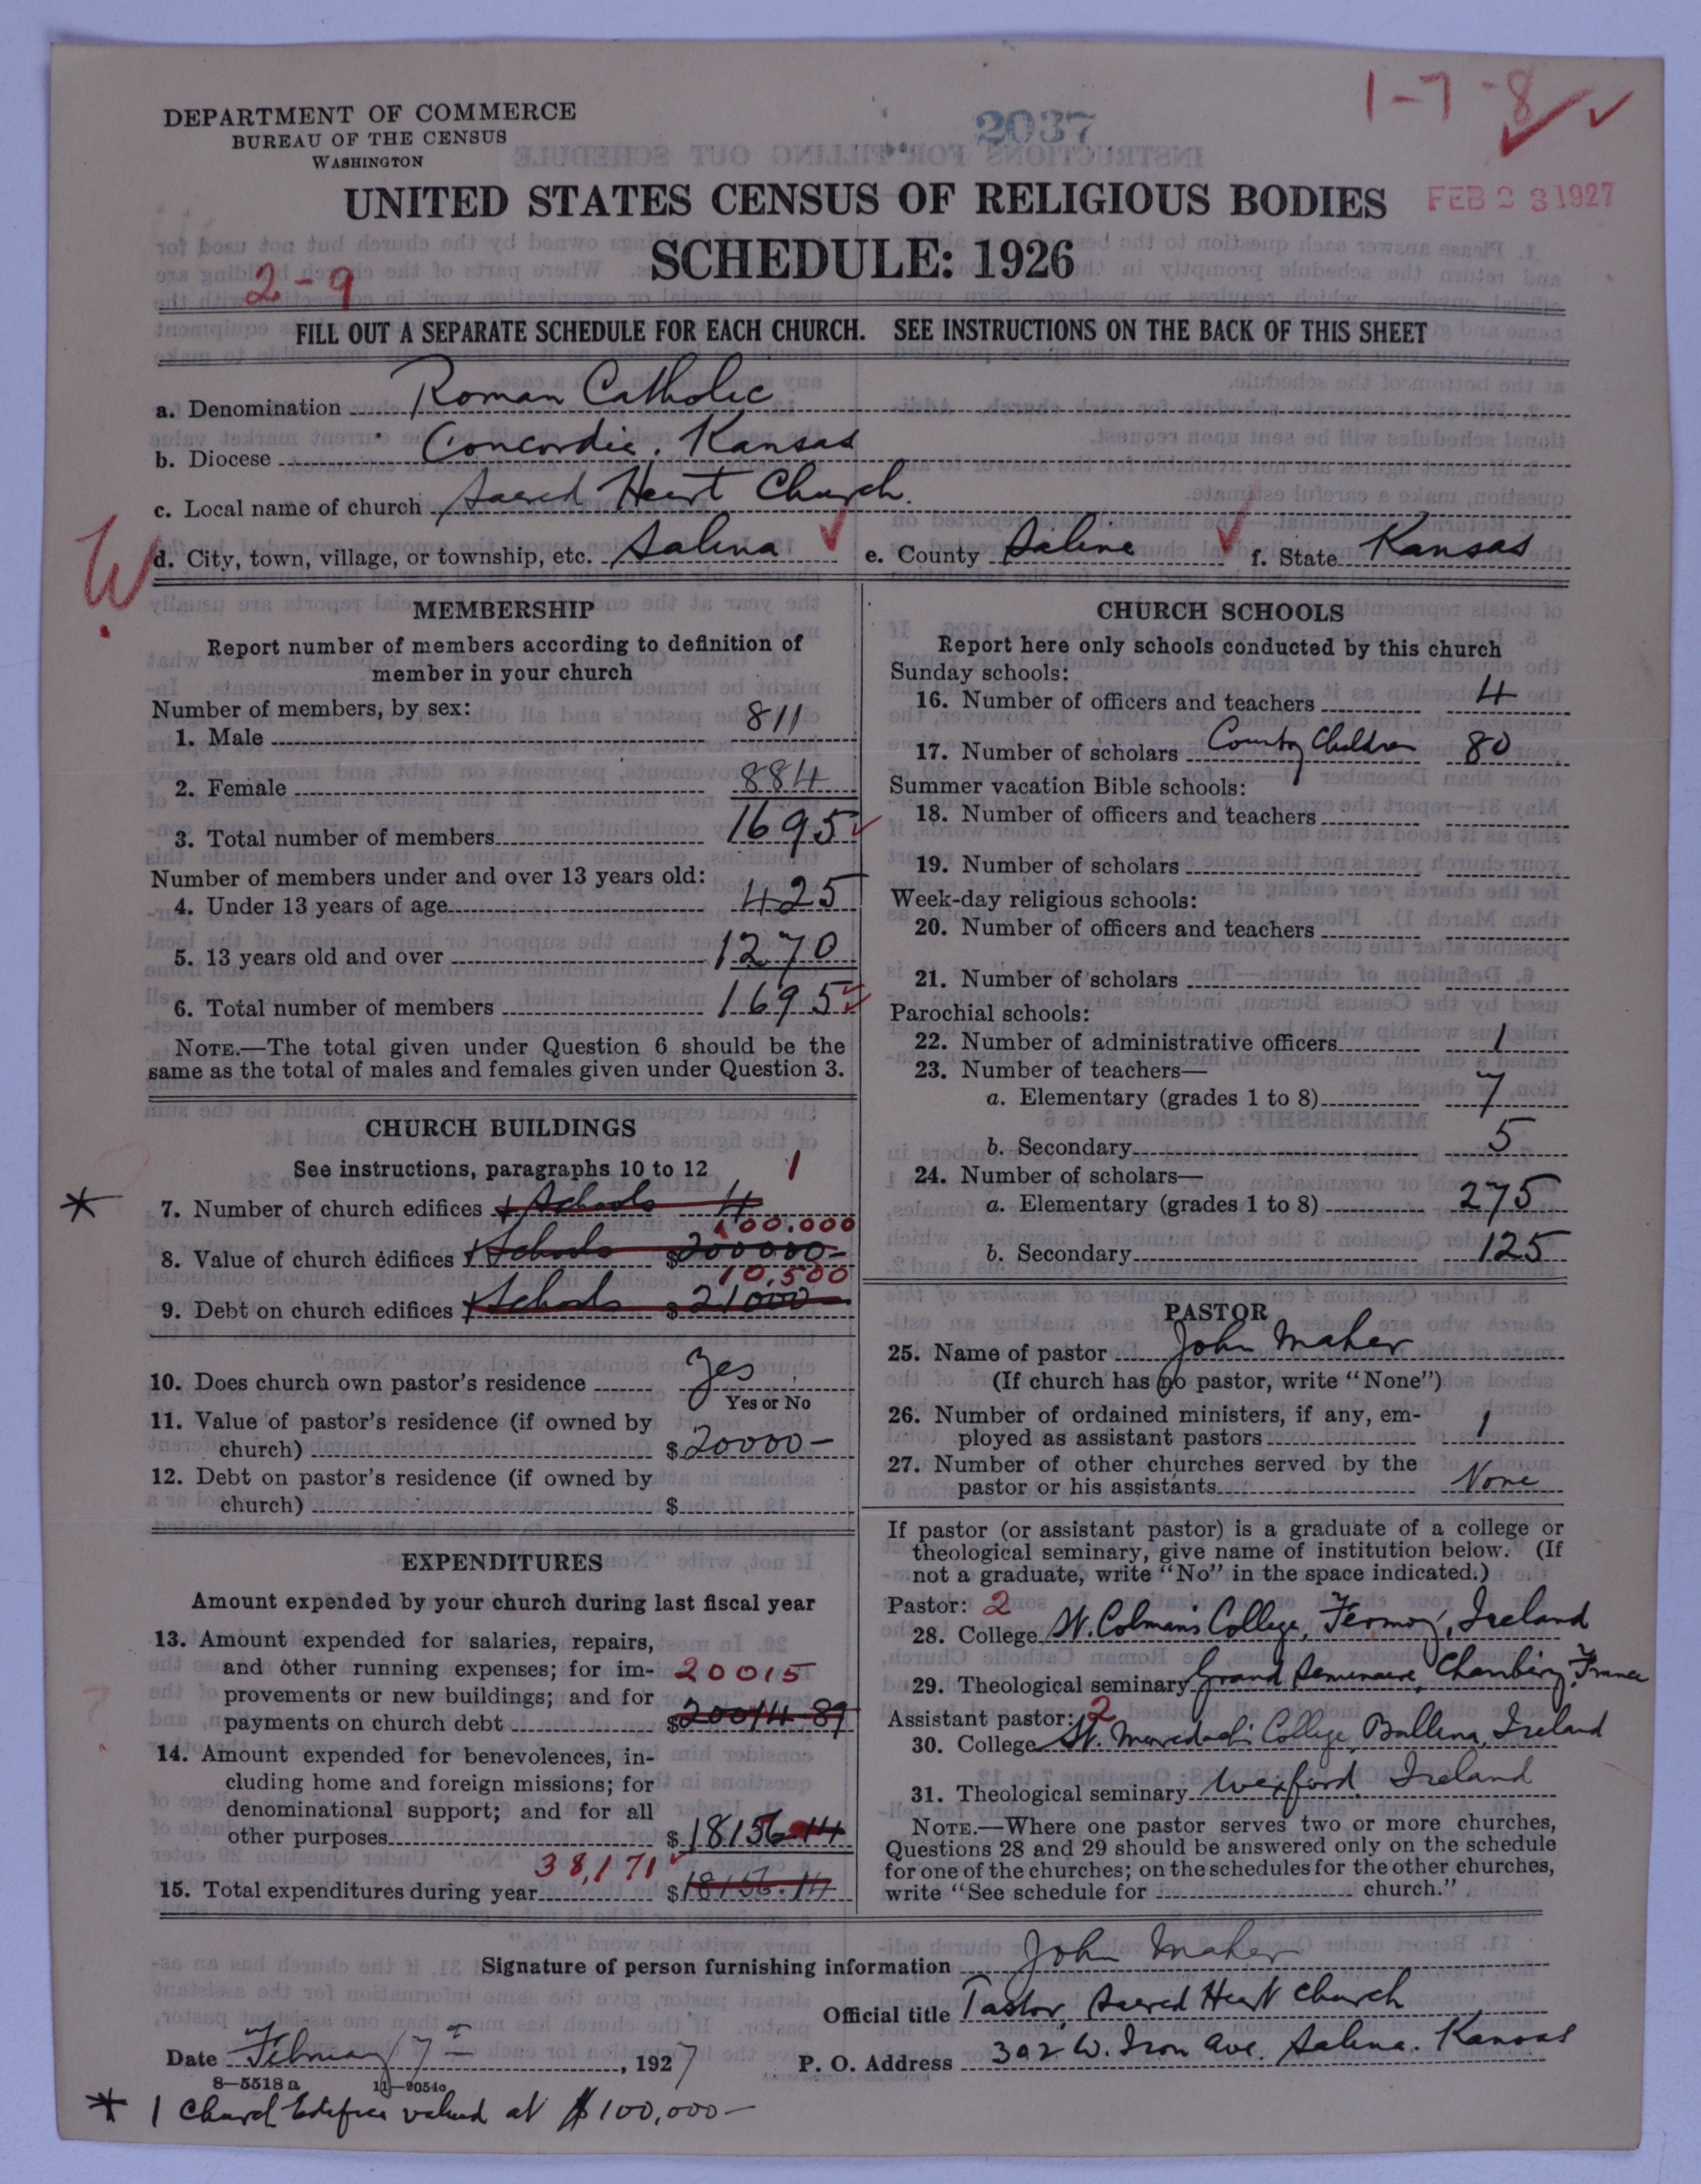 1-7-8
DEPARTMENT OF COMMERCE
BUREAU OF THE CENSUS
WASHINGTON
2037
UNITED STATES CENSUS OF RELIGIOUS BODIES
FEB 23 1927
SCHEDULE: 1926
2-9
FILL OUT A SEPARATE SCHEDULE FOR EACH CHURCH. SEE INSTRUCTIONS ON THE BACK OF THIS SHEET
a. Denomination Roman Catholic
b. Diocese Concordia. Kansas
c. Local name of church Sacred Heart Church.
W d. City, town, village, or township, etc. Salina e. County Saline f. State Kansas
MEMBERSHIP
Report number of members according to definition of
member in your church
Number of members, by sex:
1. Male 811
2. Female 884
3. Total number of members 1695
Number of members under and over 13 years old:
4. Under 13 years of age 425
5. 13 years old and over 1270
6. Total number of members 1695
NOTE.—The total given under Question 6 should be the
same as the total of males and females given under Question 3.
CHURCH BUILDINGS
See instructions, paragraphs 10 to 12 1
* 7. Number of church edifices + Schools 4
100.000
8. Value of church edifices + Schools $200000-
10,500
9. Debt on church edifices + Schools $21000-
10. Does church own pastor's residence Yes
Yes or No
11. Value of pastor's residence (if owned by
church) $20000-
12. Debt on pastor's residence (if owned by
church) $
EXPENDITURES
Amount expended by your church during last fiscal year
13. Amount expended for salaries, repairs,
and other running expenses; for im- 20015
provements or new buildings; and for
payments on church debt $20014.89
14. Amount expended for benevolences, in-
cluding home and foreign missions; for
denominational support; and for all
other purposes $18156.14
38,171
15. Total expenditures during year $18156.14
CHURCH SCHOOLS
Report here only schools conducted by this church
Sunday schools:
16. Number of officers and teachers 4
17. Number of scholars County Children 80
Summer vacation Bible schools:
18. Number of officers and teachers
19. Number of scholars
Week-day religious schools:
20. Number of officers and teachers
21. Number of scholars
Parochial schools:
22. Number of administrative officers 1
23. Number of teachers—
a. Elementary (grades 1 to 8) 7
b. Secondary 5
24. Number of scholars—
a. Elementary (grades 1 to 8) 275
b. Secondary 125
PASTOR
25. Name of pastor John Maher
(If church has no pastor, write "None")
26. Number of ordained ministers, if any, em-
ployed as assistant pastors 1
27. Number of other churches served by the
pastor or his assistants None
If pastor (or assistant pastor) is a graduate of a college or
theological seminary, give name of institution below. (If
not a graduate, write "No" in the space indicated.)
Pastor: 2
28. College St. Colmans College, Fermoy, Ireland
29. Theological seminary Grand Seminaire, Chambery, France
Assistant pastor: 2
30. College St. Muredach's College, Ballina, Ireland
31. Theological seminary Wexford, Ireland
NOTE.—Where one pastor serves two or more churches,
Questions 28 and 29 should be answered only on the schedule
for one of the churches; on the schedules for the other churches,
write "See schedule for church."
Signature of person furnishing information John Maher
Official title Pastor, Sacred Heart Church
Date February 7th, 1927 P. O. Address 302 W. Iron Ave. Salina. Kansas
8-5518a 11-9054c
* 1 Church Edifice valued at $100,000-